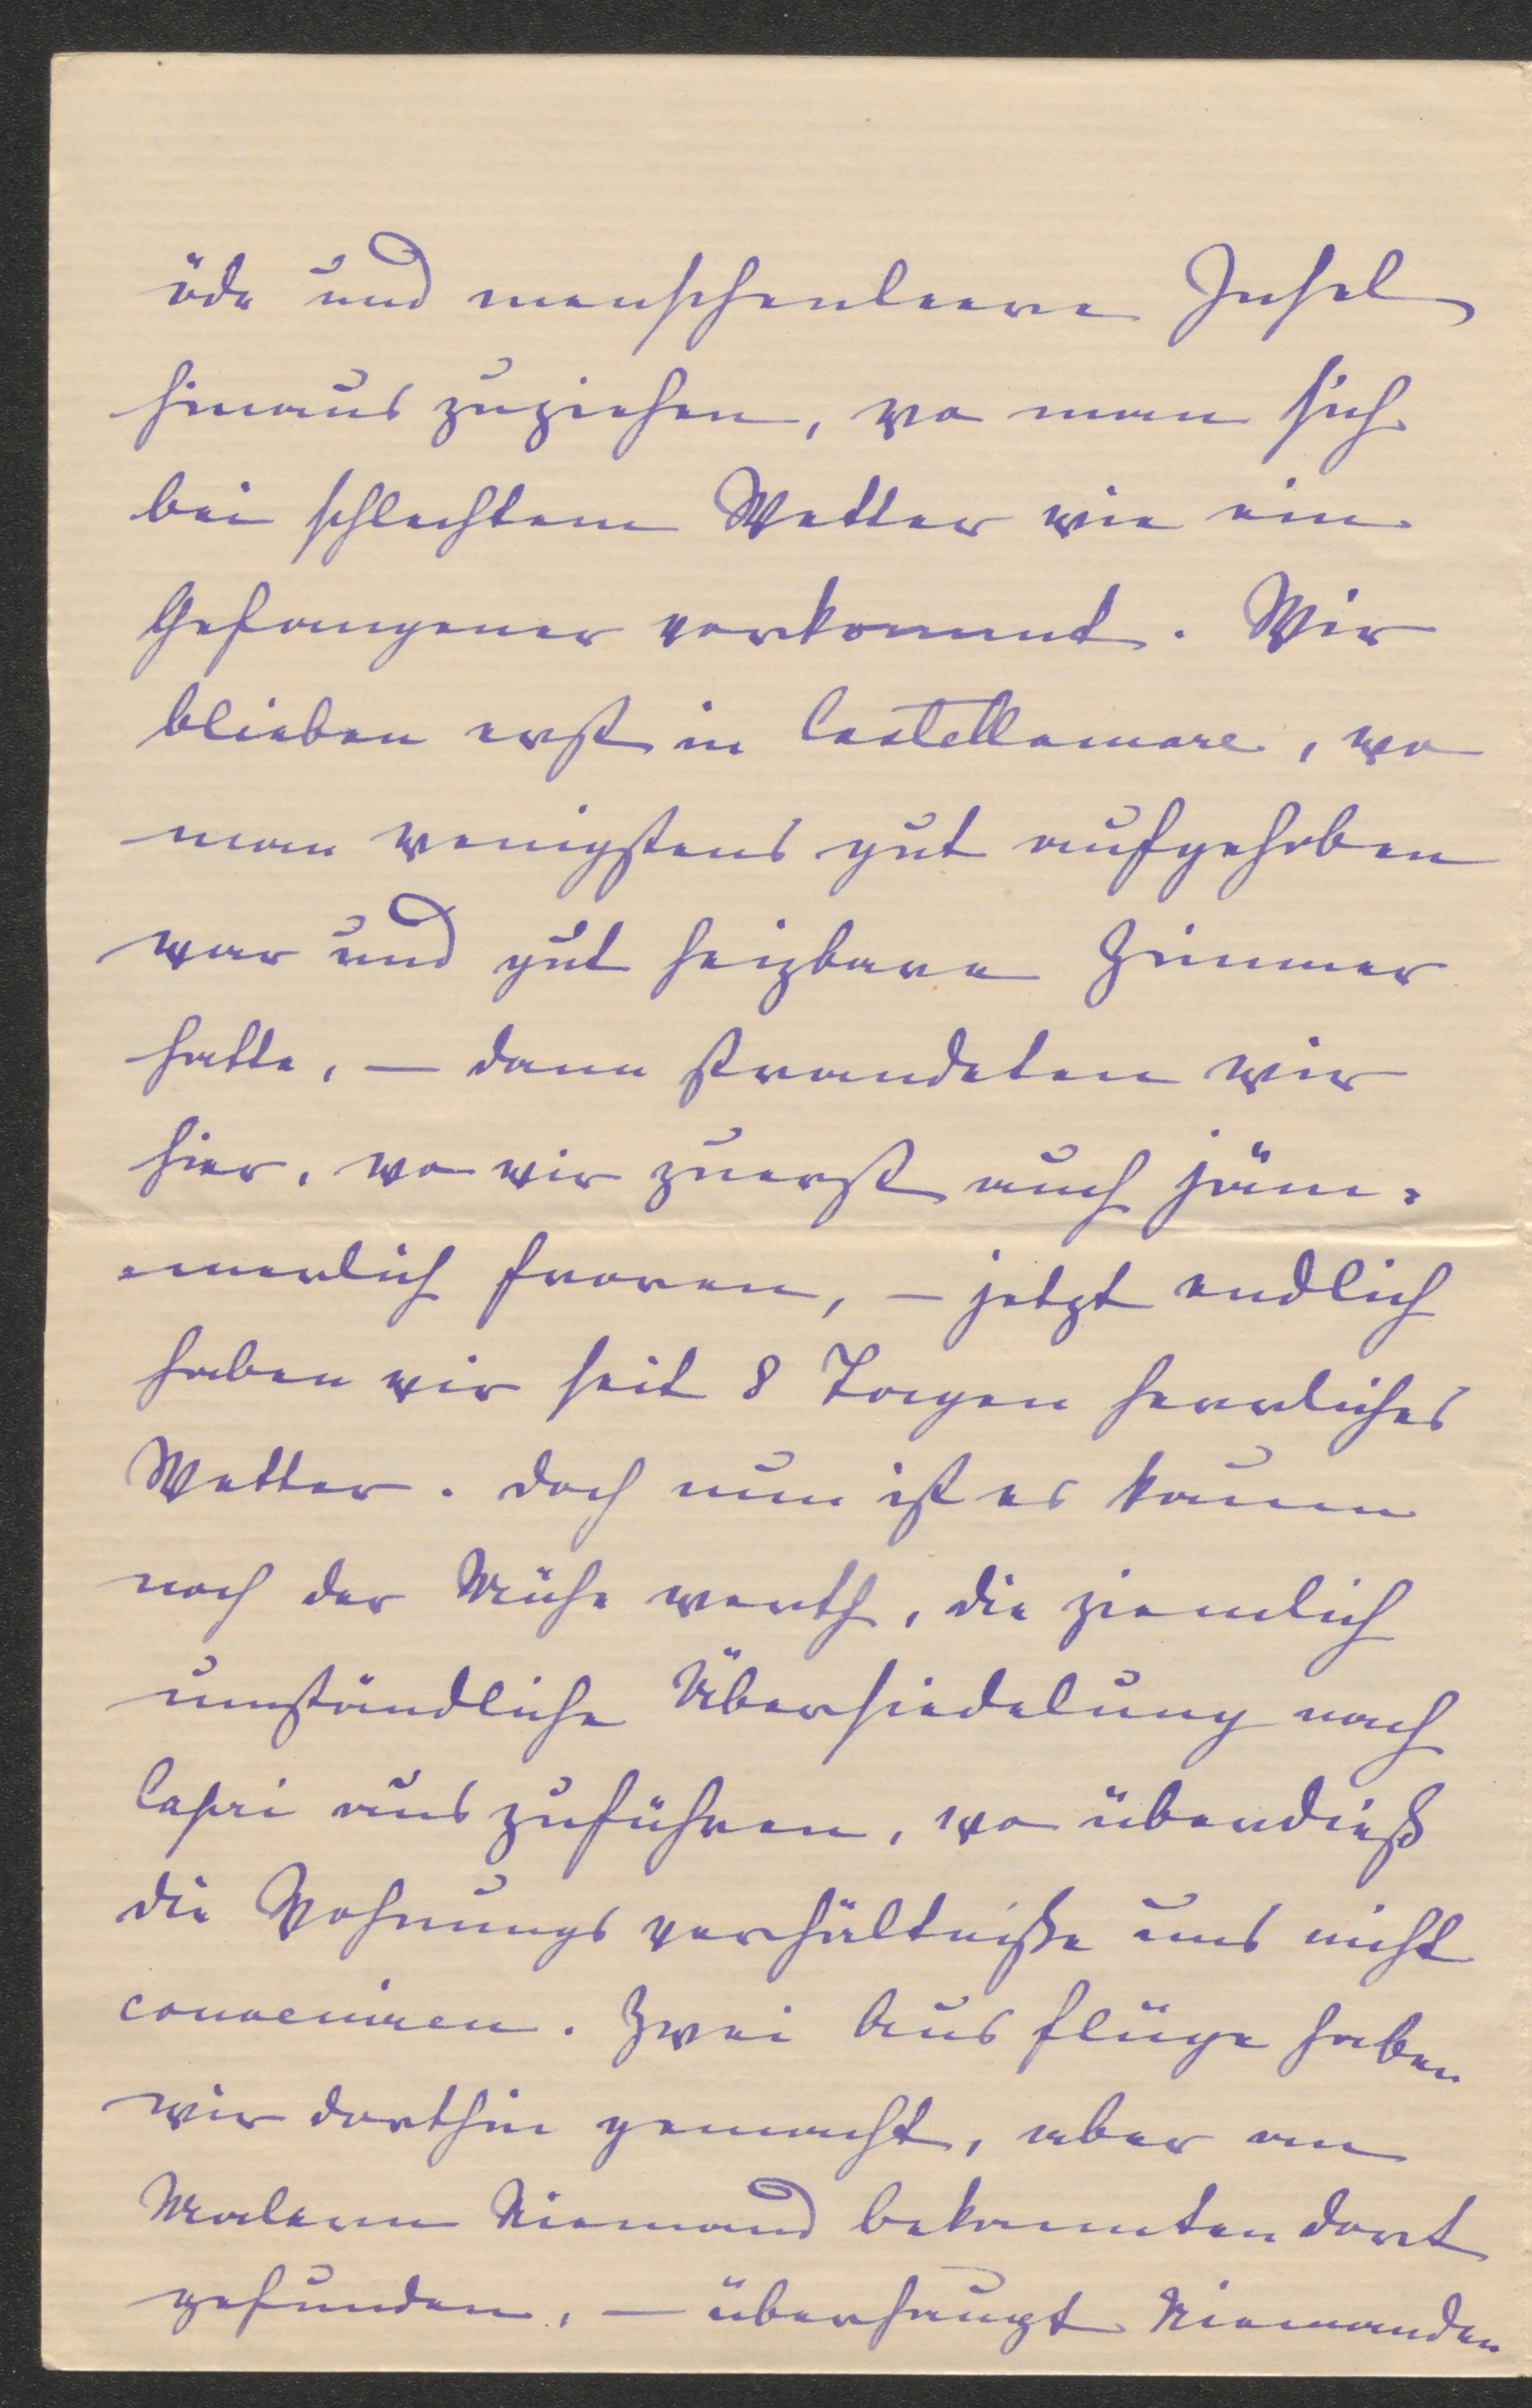 öde und menschenleere Insel
hinauszuziehen, wo man sich
bei schlechtem Wetter wie ein
Gefangener vorkommt. Wir
blieben erst in Castellamare, wo
man wenigstens gut aufgehoben
war und gut heizbare Zimmer
hatte, – dann strandeten wir
hier, wo wir zuerst auch jäm=
=merlich froren, – jetzt endlich
haben wir seit 8 Tagen herrliches
Wetter. Doch nun ist es kaum
noch der Mühe werth, die ziemlich
umständliche Übersiedelung nach
Capri auszuführen, wo überdieß
die Wohnungsverhältniße uns nicht
conveniren. Zwei Ausflüge haben
wir dorthin gemacht, aber an
Malern Niemand bekannten dort
gefunden, – überhaupt Niemanden